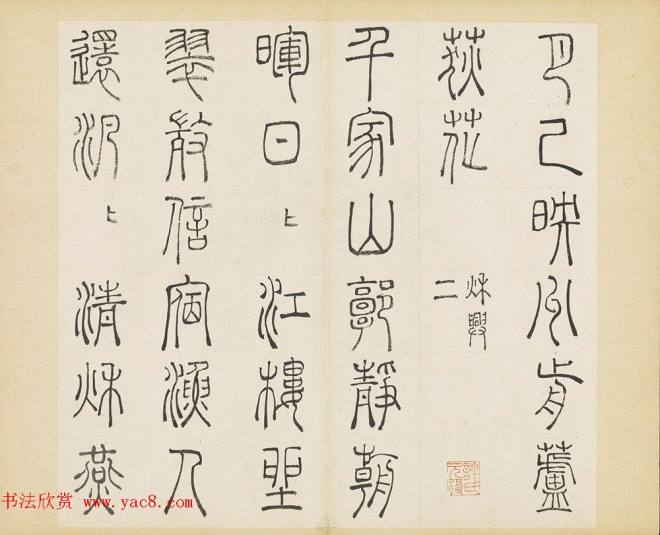 月已映州前蘆
荻花
秋興
二
千家山郭靜朝
暉日〻江樓坐
翠微信宿漁人
還汎〻清秋燕
书法欣赏 www.yac8.com